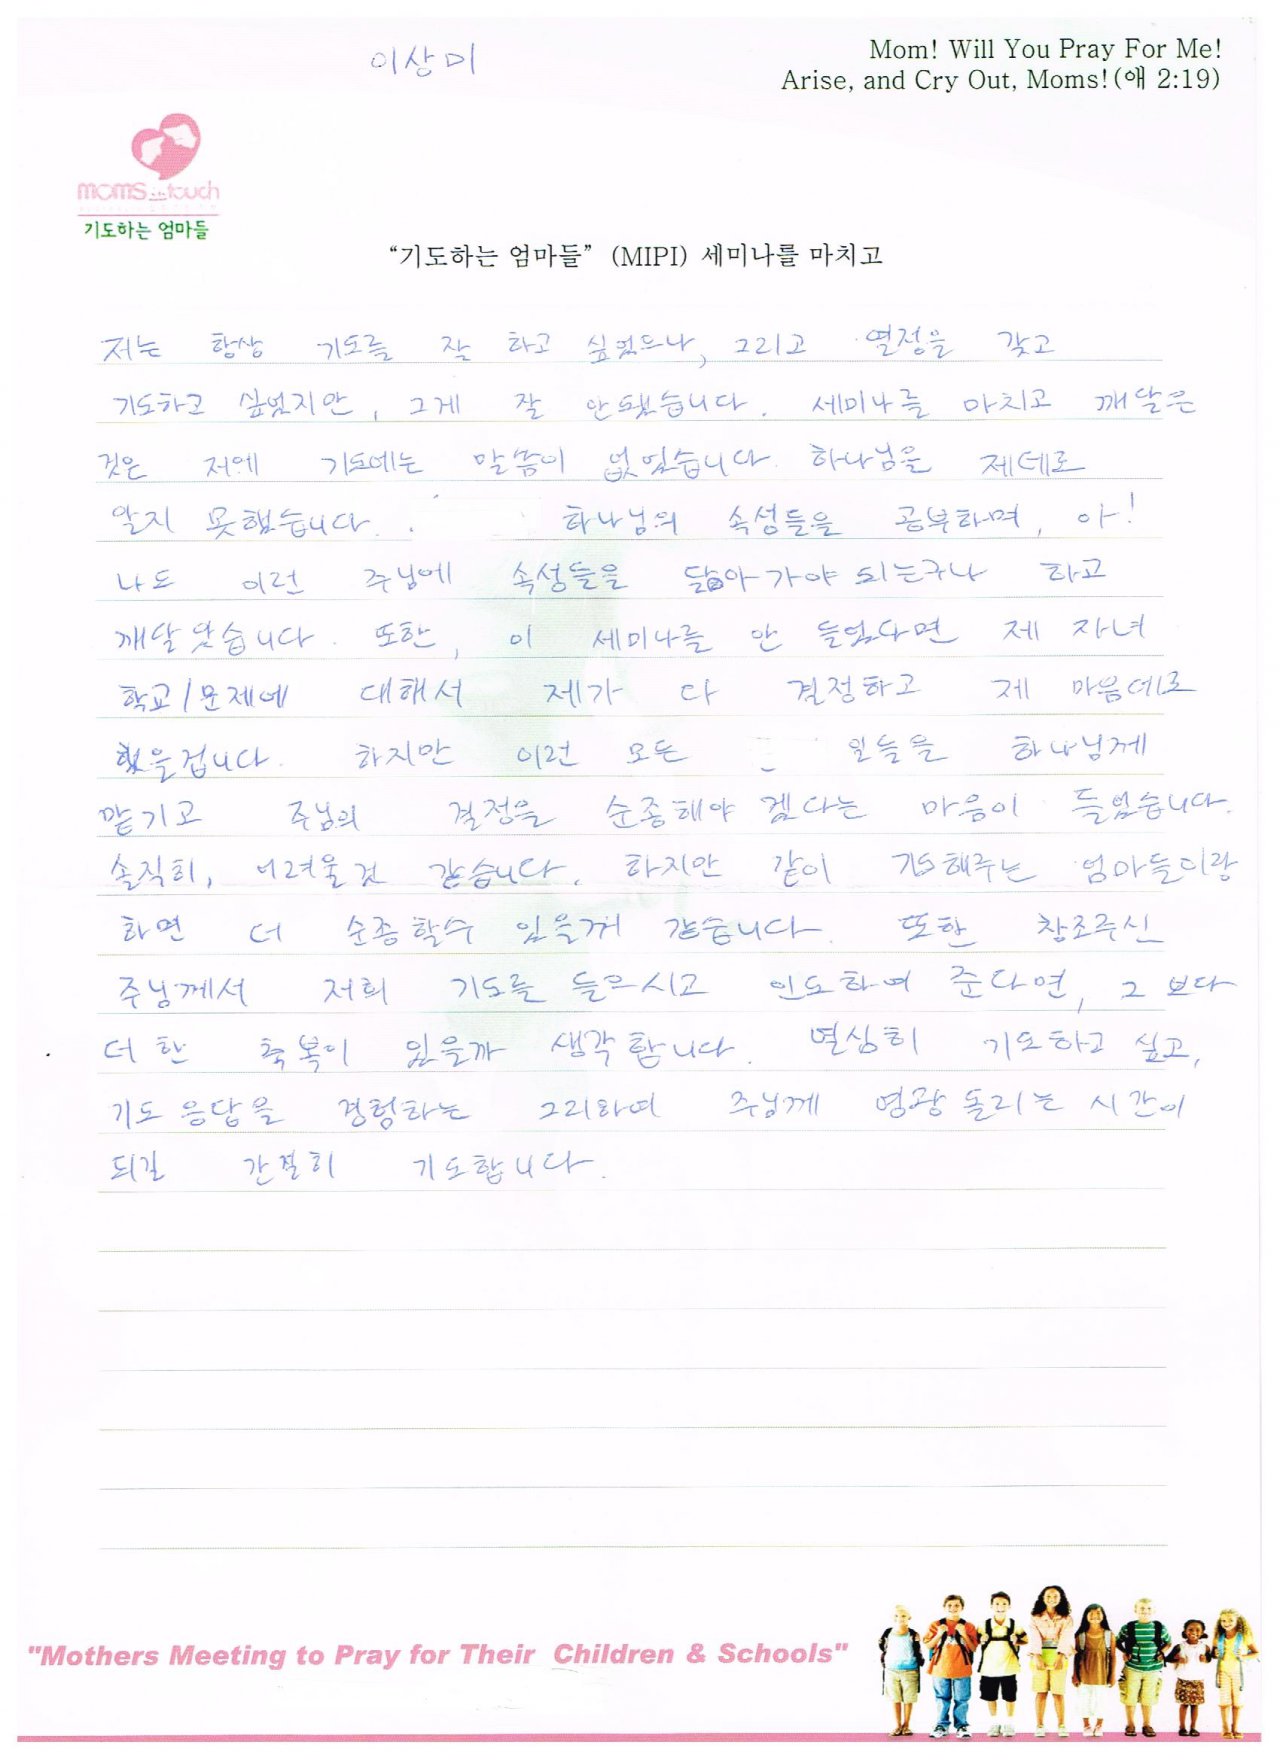 이상미
Mom! Will You Pray For Me!
Arise, and Cry Out, Moms!(애 2:19)
moms in touch
기도하는 엄마들
“기도하는 엄마들” (MIPI) 세미나를 마치고
저는 항상 기도를 잘 하고 싶었으나, 그리고 열정을 갖고
기도하고 싶었지만, 그게 잘 안됐습니다. 세미나를 마치고 깨달은
것은 저에 기도에는 말씀이 없었습니다. 하나님을 제데로
알지 못했습니다. 하나님의 속성들을 공부하며, 아!
나도 이런 주님에 속성들을 닮아가야 되는구나 하고
깨달았습니다. 또한, 이 세미나를 안 들었다면 제 자녀
학교/문제에 대해서 제가 다 결정하고 제 마음데로
했을겁니다. 하지만 이런 모든 일들을 하나님께
맡기고 주님의 결정을 순종해야 겠다는 마음이 들었습니다.
솔직히, 어려울것 같습니다. 하지만 같이 기도해주는 엄마들이랑
하면 더 순종할수 있을꺼 같습니다. 또한 창조주신
주님께서 저희 기도를 들으시고 인도하여 준다면, 그 보다
더 한 축복이 있을까 생각합니다. 열심히 기도하고 싶고,
기도 응답을 경험하는 그리하여 주님께 영광 돌리는 시간이
되길 간절히 기도합니다.
"Mothers Meeting to Pray for Their Children & Schools"